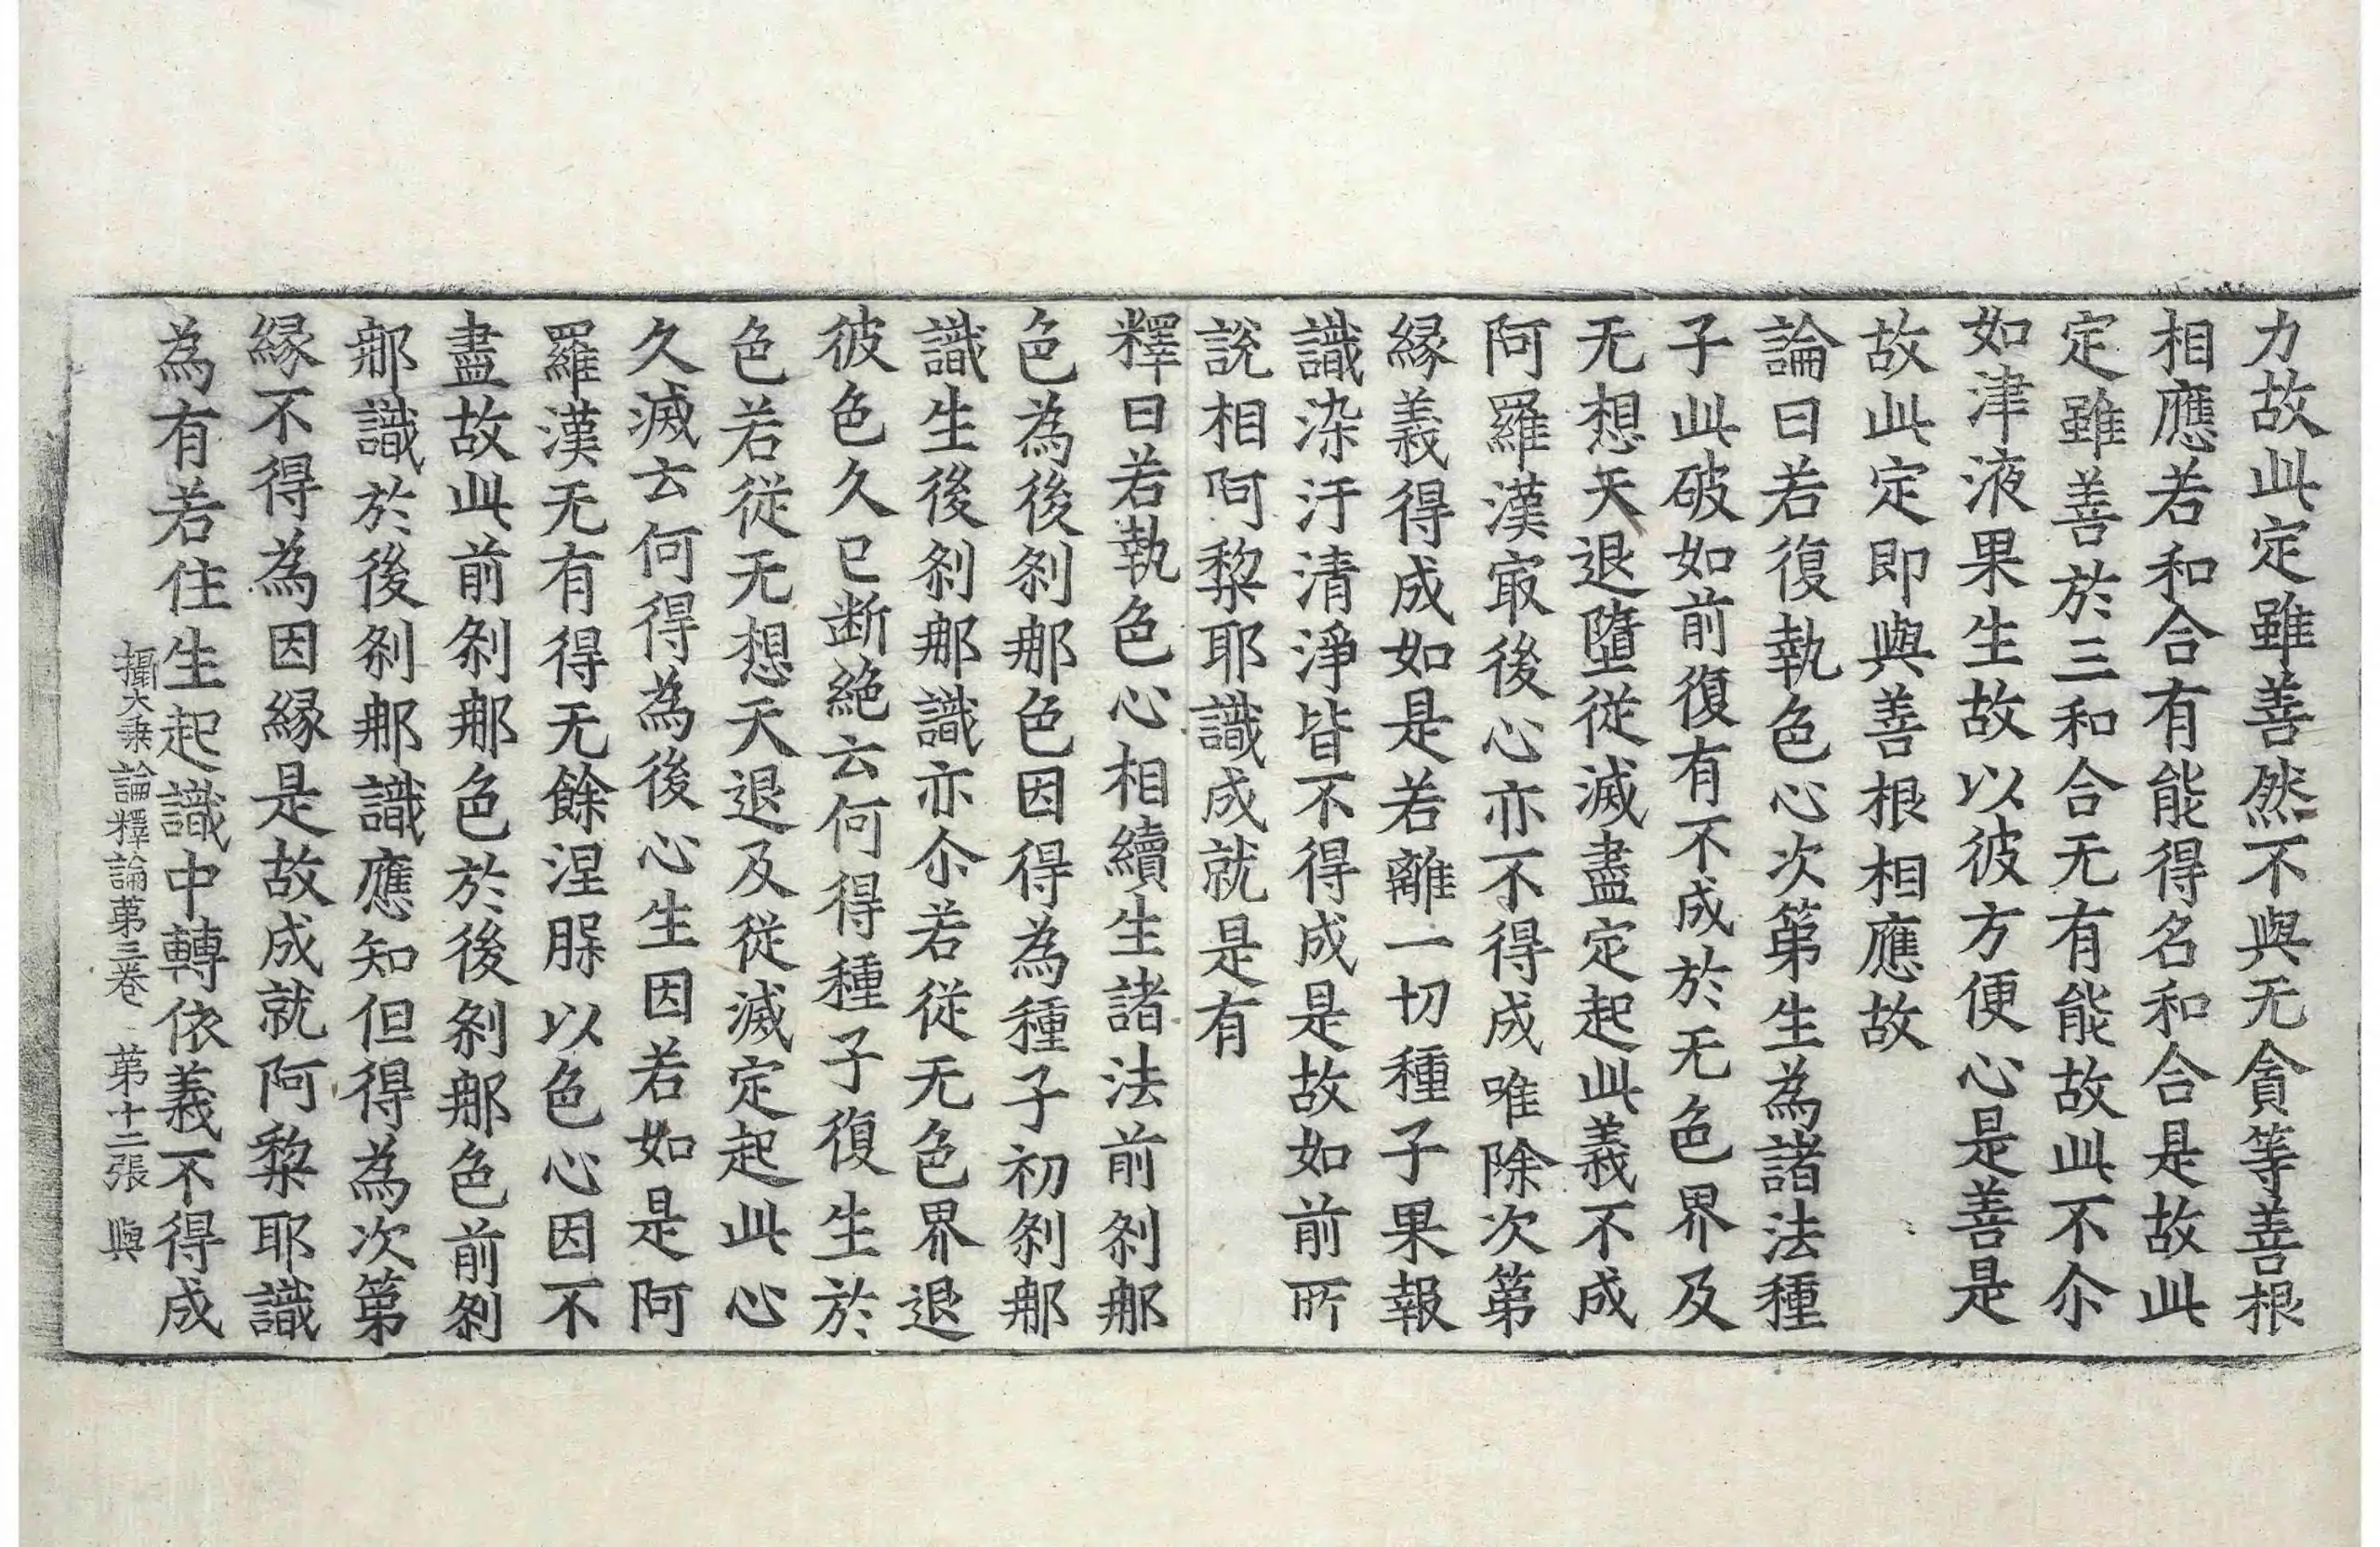 力故此定雖善然不與无貪等善根
相應若和合有能得名和合是故此
定雖善於三和合无有能故此不尒
如津液果生故以彼方便心是善是
故此定即與善根相應故
論曰若復執色心次第生為諸法種
子此破如前復有不成於无色界及
无想天退墮從滅盡定起此義不成
阿羅漢㝡後心亦不得成唯除次第
緣義得成如是若離一切種子果報
識染汙清淨皆不得成是故如前所
說相阿黎耶識成就是有
釋曰若執色心相續生諸法前剎那
色為後剎那色因得為種子初剎那
識生後剎那識亦尒若從无色界退
彼色久已斷絶云何得種子復生於
色若從无想天退及從滅定起此心
久滅云何得為後心生因若如是阿
羅漢无有得无餘涅脲以色心因不
盡故此前剎那色於後剎那色前剎
那識於後剎那識應知但得為次第
緣不得為因緣是故成就阿黎耶識
為有若住生起識中轉依義不得成
攝大乗論釋論第三卷 第十二張 與